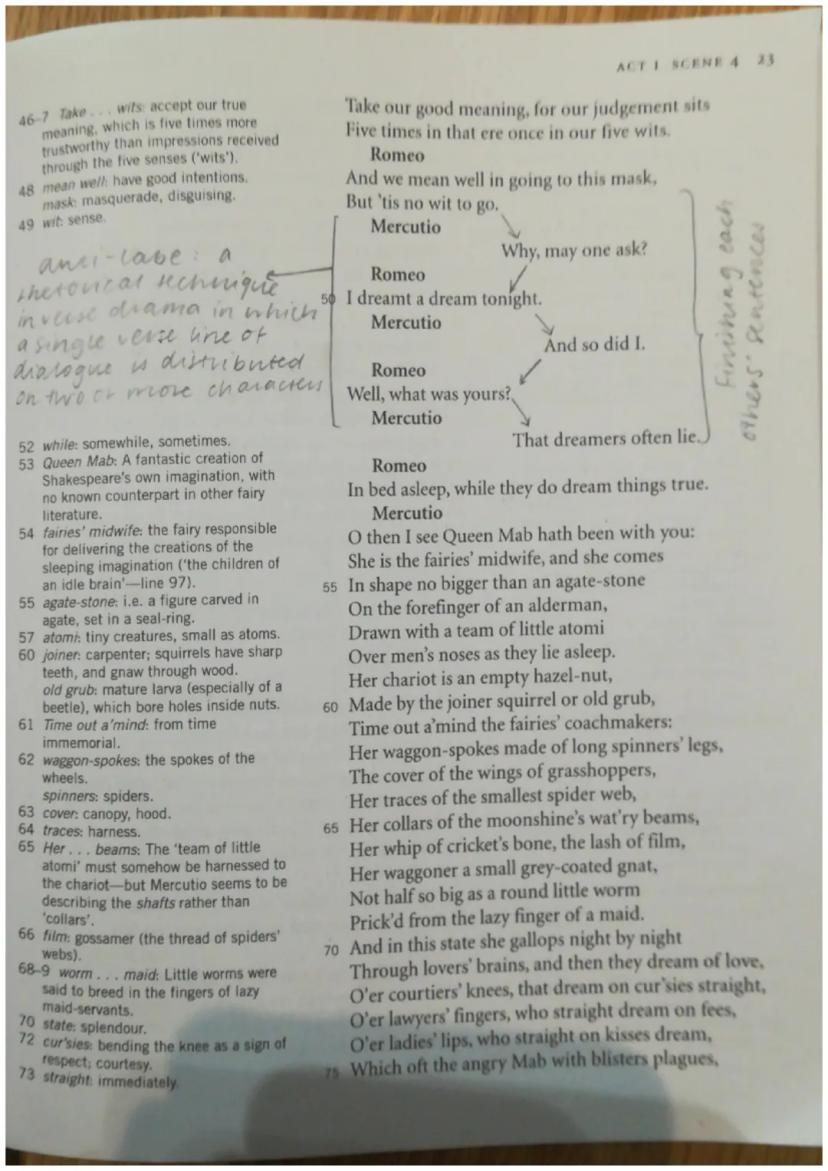 ACT 1 SCENE 4 23
46–7 Take . . . wits: accept our true
meaning, which is five times more
trustworthy than impressions received
through the five senses ('wits').
48 mean well: have good intentions.
mask: masquerade, disguising.
49 wit: sense.
anti-labe: a
rhetorical technique
in verse drama in which
a single verse line of
dialogue is distributed
on two or more characters
52 while: somewhile, sometimes.
53 Queen Mab: A fantastic creation of
Shakespeare's own imagination, with
no known counterpart in other fairy
literature.
54 fairies' midwife: the fairy responsible
for delivering the creations of the
sleeping imagination ('the children of
an idle brain'—line 97).
55 agate-stone: i.e. a figure carved in
agate, set in a seal-ring.
57 atomi: tiny creatures, small as atoms.
60 joiner: carpenter; squirrels have sharp
teeth, and gnaw through wood.
old grub: mature larva (especially of a
beetle), which bore holes inside nuts.
61 Time out a'mind: from time
immemorial.
62 waggon-spokes: the spokes of the
wheels.
spinners: spiders.
63 cover: canopy, hood.
64 traces: harness.
65 Her . . . beams: The 'team of little
atomi' must somehow be harnessed to
the chariot—but Mercutio seems to be
describing the shafts rather than
'collars'.
66 film: gossamer (the thread of spiders'
webs).
68–9 worm . . . maid: Little worms were
said to breed in the fingers of lazy
maid-servants.
70 state: splendour.
72 cur'sies: bending the knee as a sign of
respect; courtesy.
73 straight: immediately.
Take our good meaning, for our judgement sits
Five times in that ere once in our five wits.
Romeo
And we mean well in going to this mask,
But 'tis no wit to go.
Mercutio
Why, may one ask?
Romeo
50 I dreamt a dream tonight.
Mercutio
And so did I.
Romeo
Well, what was yours?
Mercutio
That dreamers often lie.
Romeo
In bed asleep, while they do dream things true.
Mercutio
O then I see Queen Mab hath been with you:
She is the fairies' midwife, and she comes
55 In shape no bigger than an agate-stone
On the forefinger of an alderman,
Drawn with a team of little atomi
Over men's noses as they lie asleep.
Her chariot is an empty hazel-nut,
60 Made by the joiner squirrel or old grub,
Time out a'mind the fairies' coachmakers:
Her waggon-spokes made of long spinners' legs,
The cover of the wings of grasshoppers,
Her traces of the smallest spider web,
65 Her collars of the moonshine's wat'ry beams,
Her whip of cricket's bone, the lash of film,
Her waggoner a small grey-coated gnat,
Not half so big as a round little worm
Prick'd from the lazy finger of a maid.
70 And in this state she gallops night by night
Through lovers' brains, and then they dream of love,
O'er courtiers' knees, that dream on cur'sies straight,
O'er lawyers' fingers, who straight dream on fees,
O'er ladies' lips, who straight on kisses dream,
75 Which oft the angry Mab with blisters plagues,
Finishing each
others' sentences